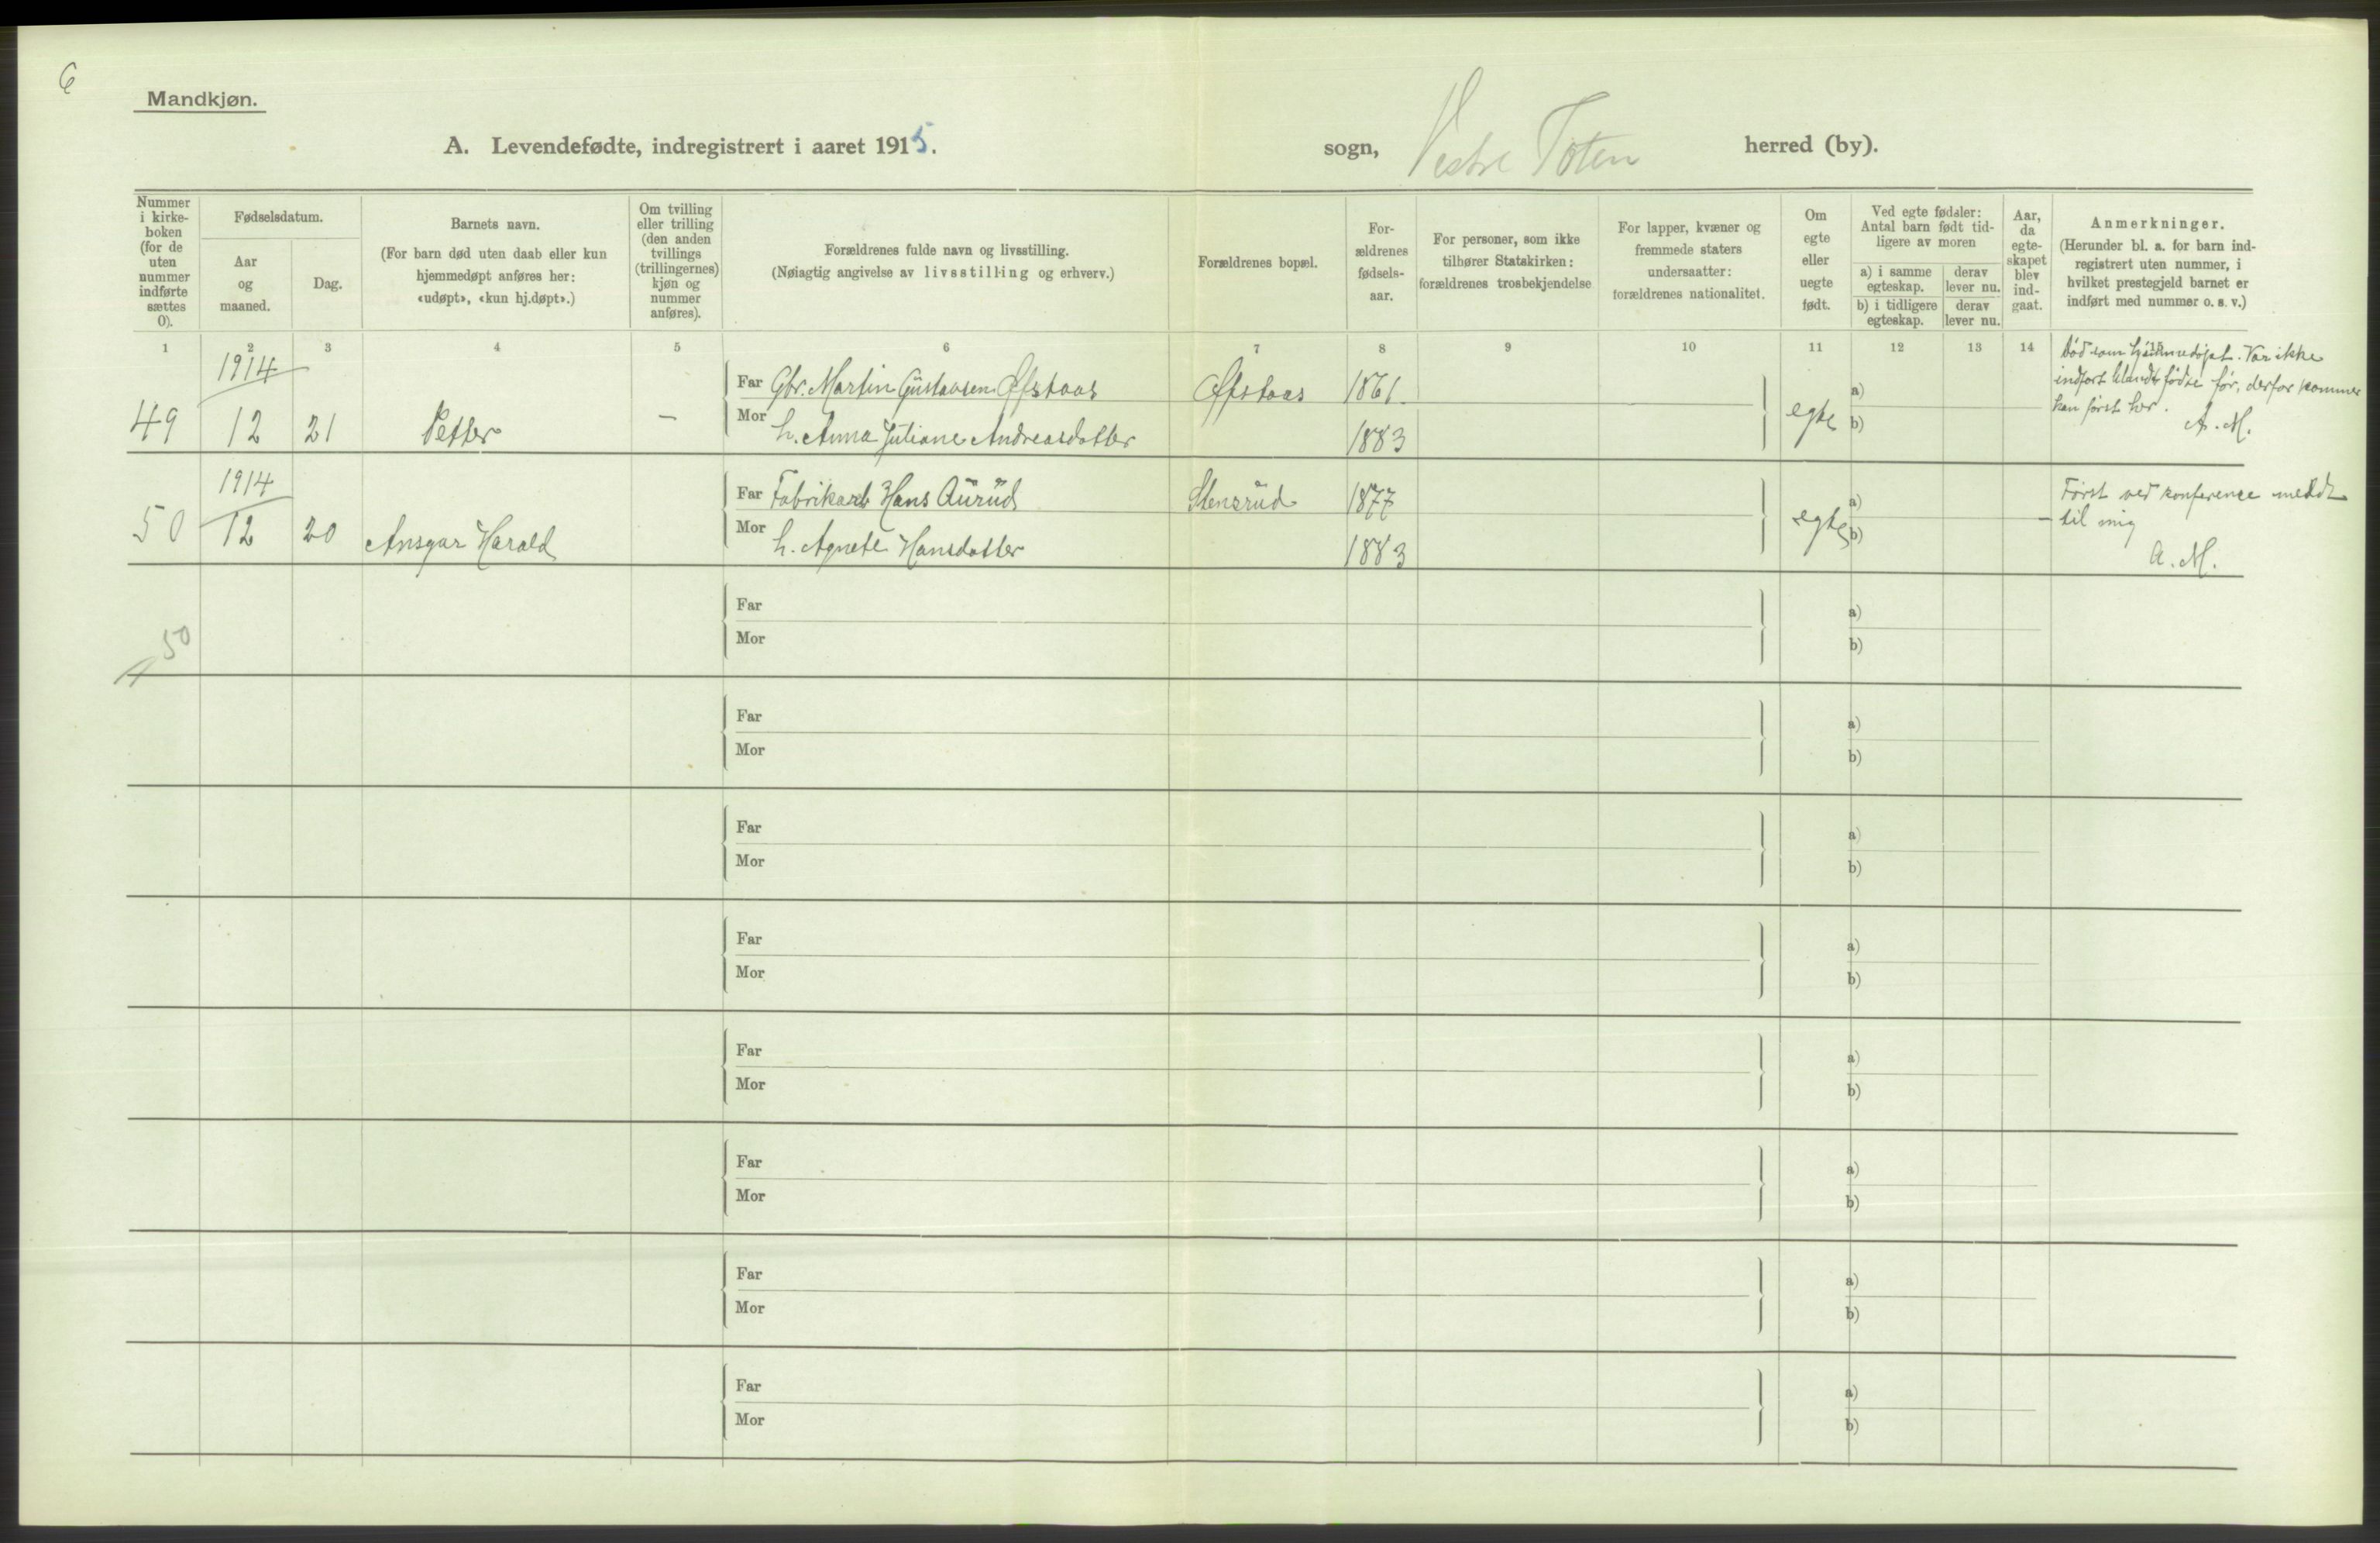 6
Mandkjøn.
A. Levendefødte, indregistrert i aaret 1915. sogn, Vestre Toten herred (by).
Nummer i kirke-boken (for de uten nummer indførte sættes 0).
Fødselsdatum.
Aar og maaned.
Dag.
Barnets navn.
(For barn død uten daab eller kun hjemmedøpt anføres her: «udøpt», «kun hj.døpt».)
Om tvilling eller trilling (den anden tvillings (trillingernes) kjøn og nummer anføres).
Forældrenes fulde navn og livsstilling.
(Nøiagtig angivelse av livsstilling og erhverv.)
Forældrenes bopæl.
For-ældrenes fødsels-aar.
For personer, som ikke tilhører Statskirken: forældrenes trosbekjendelse
For lapper, kvæner og fremmede staters undersaatter: forældrenes nationalitet.
Om egte eller uegte født.
Ved egte fødsler: Antal barn født tid-ligere av moren
a) i samme egteskap.
derav lever nu.
b) i tidligere egteskap.
derav lever nu.
Aar, da egte-skapet blev ind-gaat.
Anmerkninger.
(Herunder bl. a. for barn ind-registrert uten nummer, i hvilket prestegjeld barnet er indført med nummer o. s. v.)
1 2 3 4 5 6 7 8 9 10 11 12 13 14 15
49 1914 12 21 Petter —
Far Gbr. Martin Gustavsen Øfstaas Øfstaas 1861
Mor h. Anna Juliane Andreasdatter 1883
egte a) b)
Død som hjemmedøpt. Var ikke
indført blandt fødte før, derfor kommer
han først her.
A. M.
50 1914 12 20 Ansgar Harald
Far Fabrikarb Hans Aurud Stensrud 1877
Mor h. Agnete Hansdatter 1883
egte a) b)
Først ved konference meldt
til mig
A. M.
Far a)
Mor b)
50
Far a)
Mor b)
Far a)
Mor b)
Far a)
Mor b)
Far a)
Mor b)
Far a)
Mor b)
Far a)
Mor b)
Far a)
Mor b)